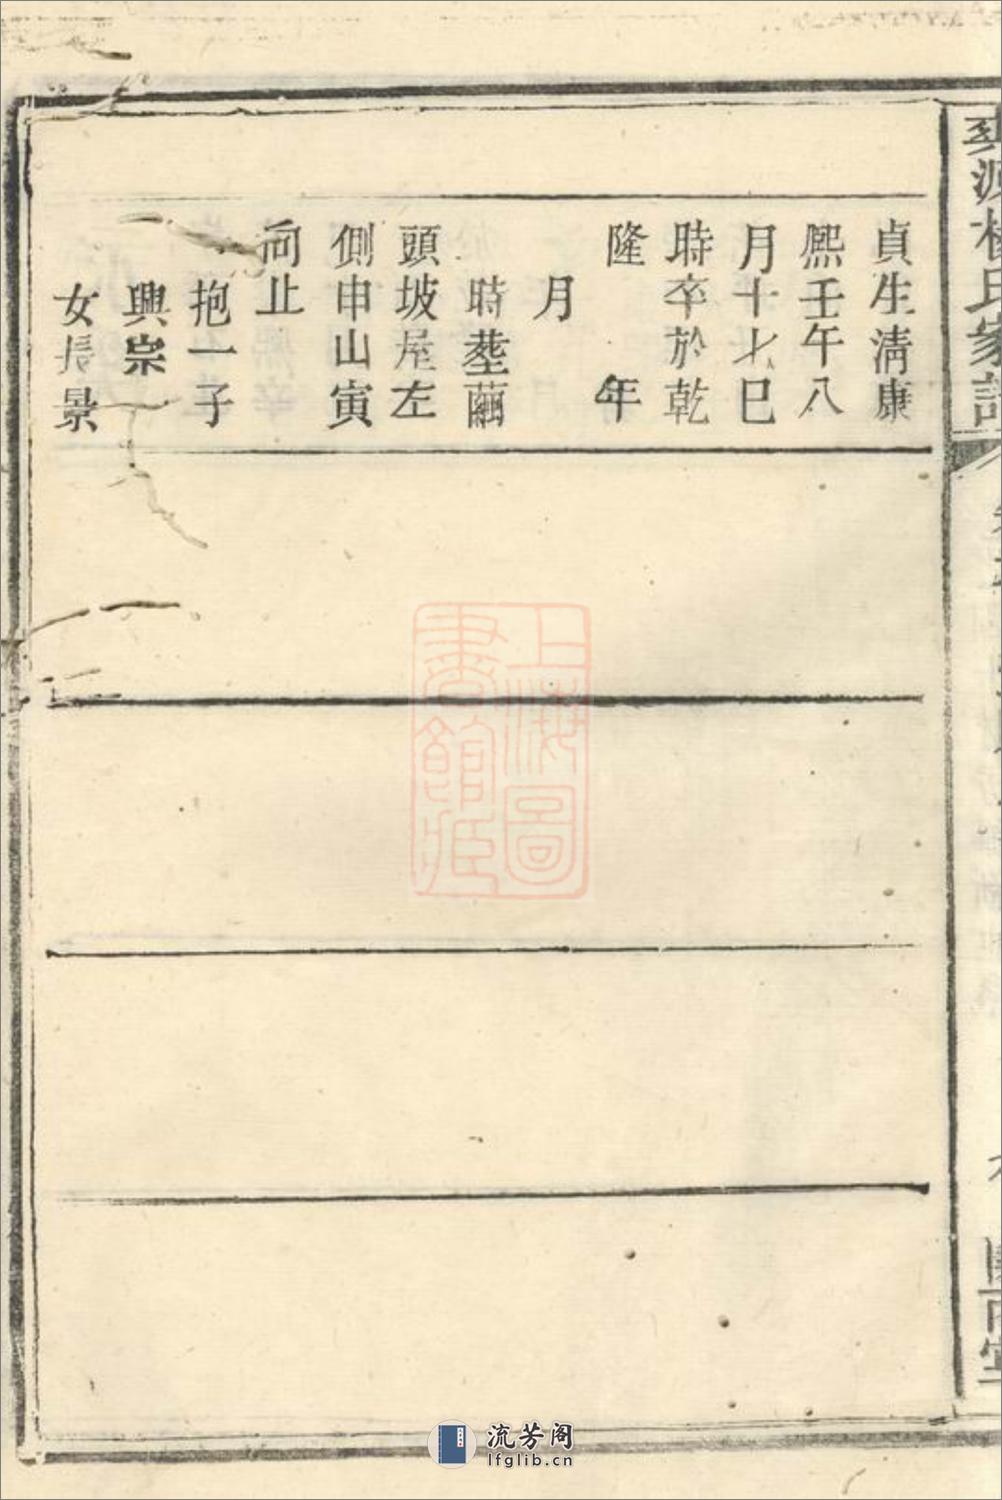 貞生清康
熙壬午八
月十九巳
時卒於乾
隆 年
月
時塟繭
頭坡屋左
側申山寅
向止
抱一子
興宗
女長景
源楊氏家譜
上海圖
書館藏
流芳阁
lfglib.cn